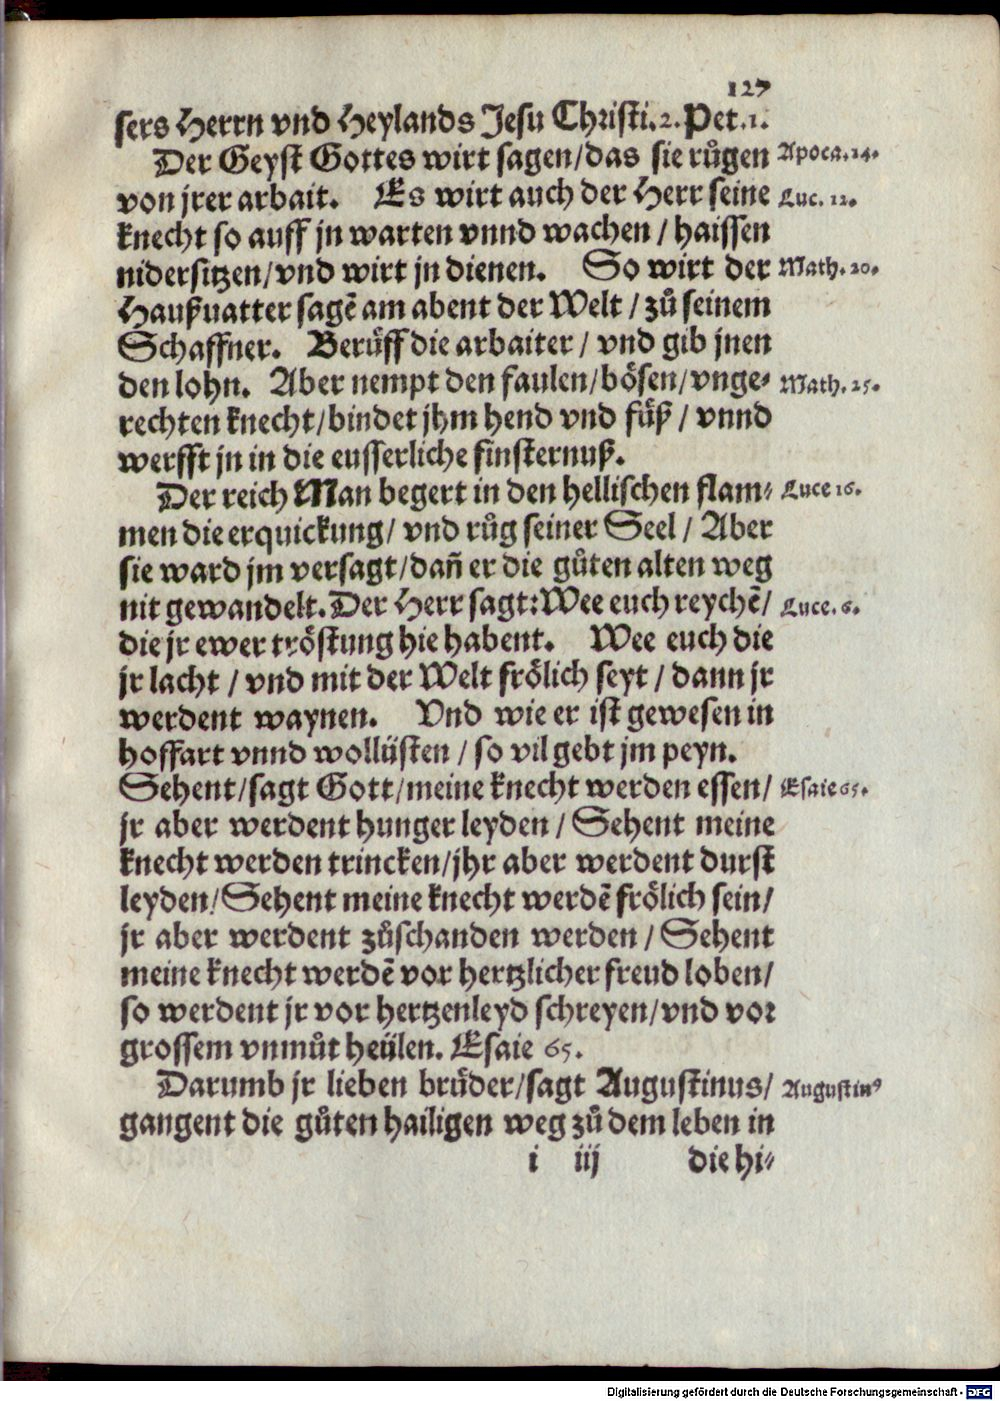 127
sers Herrn vnd Heylands Jesu Christi. 2. Pet. 1.
Der Geyst Gottes wirt sagen/das sie růgen Apoca. 14.
von jrer arbait. Es wirt auch der Herr seine Luc. 12.
knecht so auff jn warten vnnd wachen / haissen
nidersitzen/vnd wirt jn dienen. So wirt der Math. 20.
Haußuatter sagē am abent der Welt / zů seinem
Schaffner. Berůff die arbaiter / vnd gib jnen
den lohn. Aber nempt den faulen/bösen/vnge⸗ Math. 25.
rechten knecht/bindet jhm hend vnd fůß / vnnd
werfft jn in die eusserliche finsternuß.
Der reich Man begert in den hellischen flam⸗ Luce 16.
men die erquickung/ vnd růg seiner Seel / Aber
sie ward jm versagt/dañ er die gůten alten weg
nit gewandelt. Der Herr sagt: Wee euch reychē/ Luce. 6.
die jr ewer tröstung hie habent. Wee euch die
jr lacht / vnd mit der Welt frölich seyt / dann jr
werdent waynen. Vnd wie er ist gewesen in
hoffart vnnd wollüsten / so vil gebt jm peyn.
Sehent/sagt Gott/meine knecht werden essen/ Esaie 65.
jr aber werdent hunger leyden / Sehent meine
knecht werden trincken/jhr aber werdent durst
leyden/Sehent meine knecht werdē frölich sein/
jr aber werdent zůschanden werden / Sehent
meine knecht werdē vor hertzlicher freud loben/
so werdent jr vor hertzenleyd schreyen/vnd vor
grossem vnmůt heülen. Esaie 65.
Darumb jr lieben brüder/sagt Augustinus/ Augustinꝰ
gangent die gůten hailigen weg zů dem leben in
i iij die hi⸗
Digitalisierung gefördert durch die Deutsche Forschungsgemeinschaft - DFG